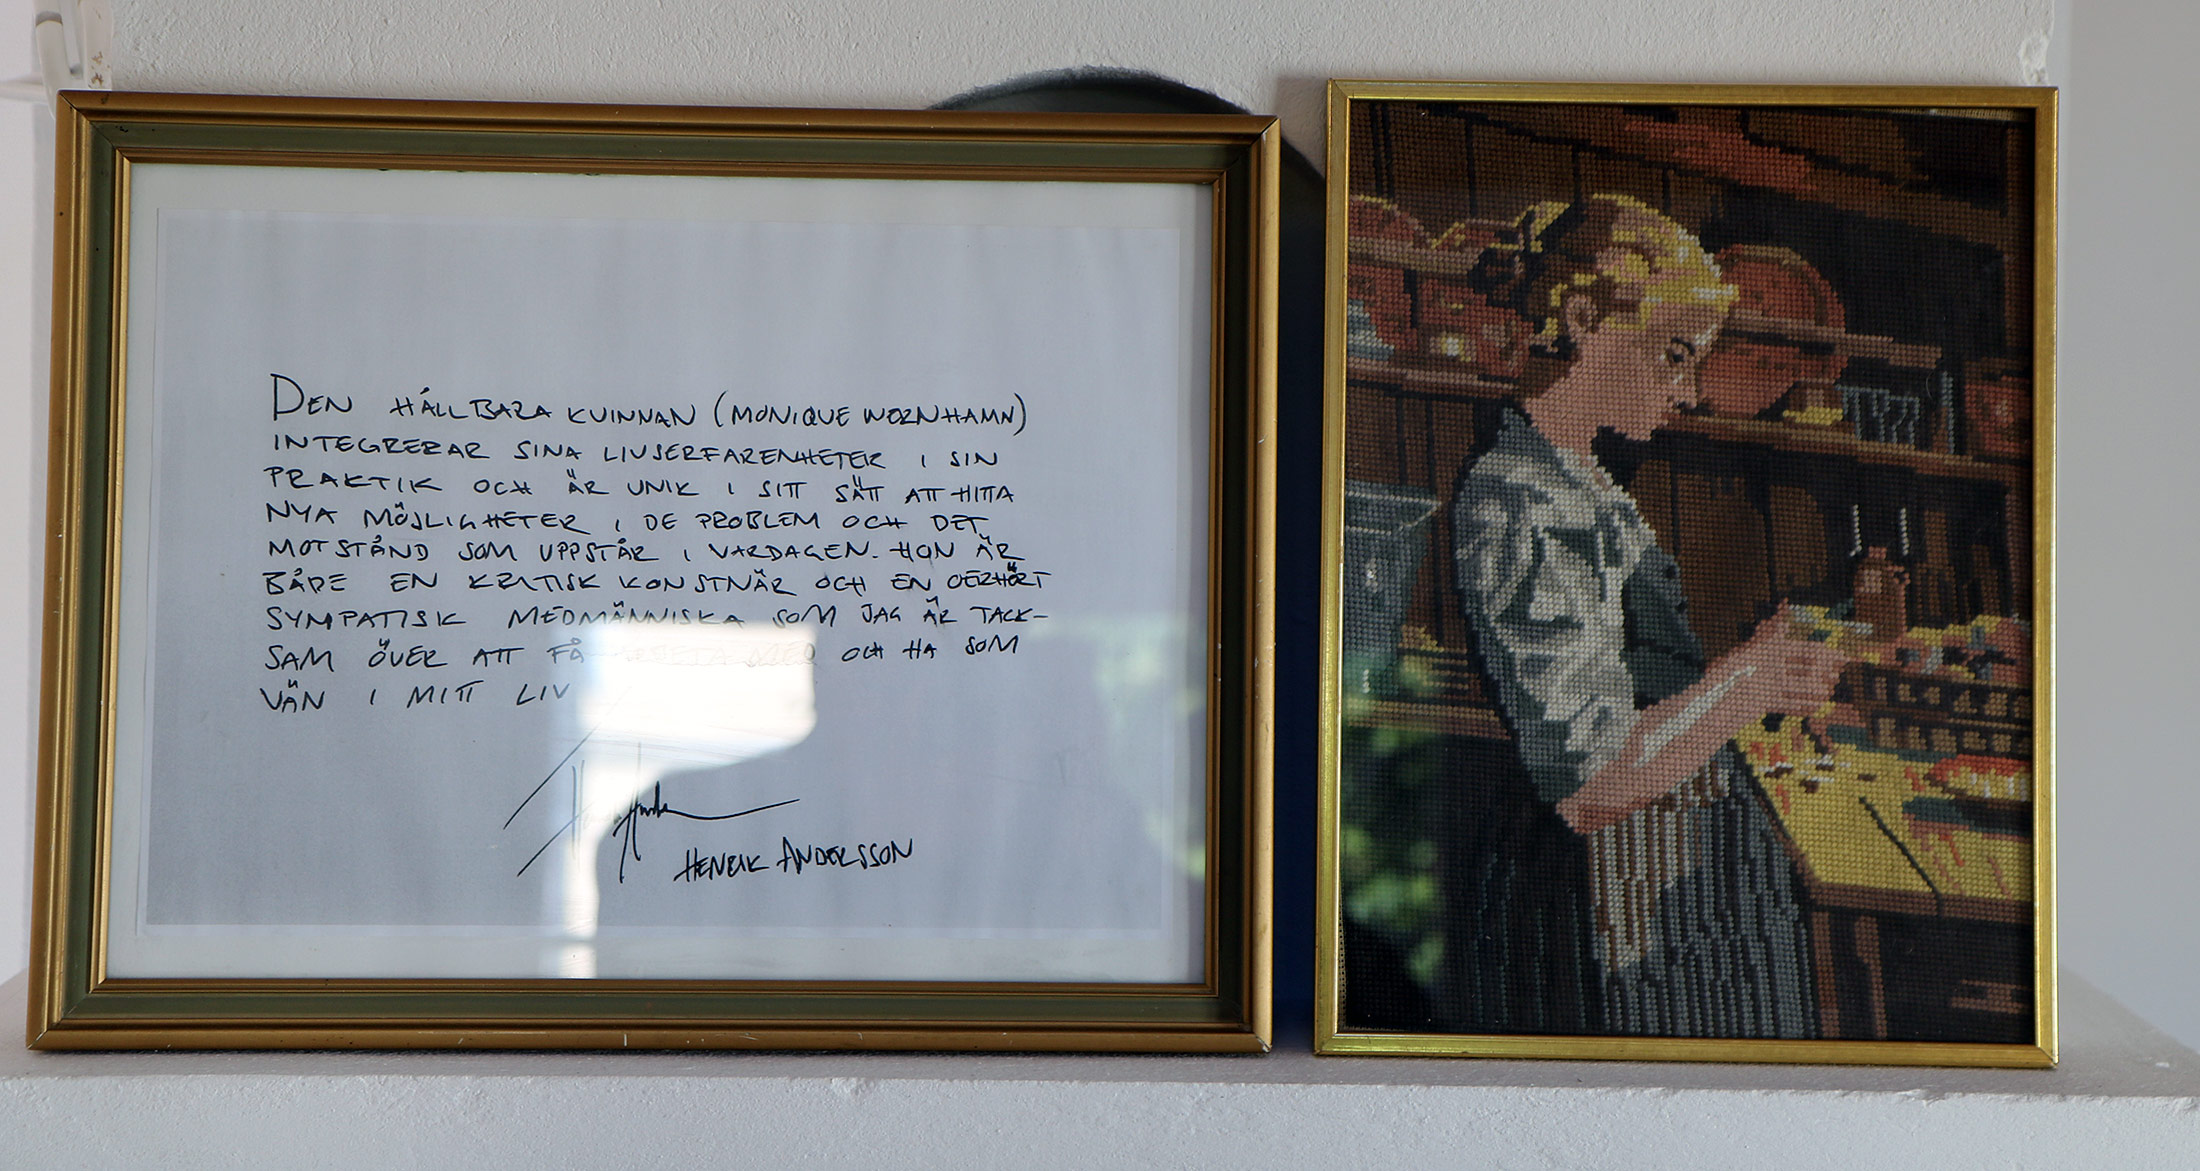 DEN HÅLLBARA KVINNAN (MONIQUE WERNHAMN)
INTEGRERAR SINA LIVSERFARENHETER I SIN
PRAKTIK OCH ÄR UNIK I SITT SÄTT ATT HITTA
NYA MÖJLIGHETER I DE PROBLEM OCH DET
MOTSTÅND SOM UPPSTÅR I VARDAGEN. HON ÄR
BÅDE EN KRITISK KONSTNÄR OCH EN OERHÖRT
SYMPATISK MEDMÄNNISKA SOM JAG ÄR TACK-
SAM ÖVER ATT FÅ ARBETA MED OCH HA SOM
VÄN I MITT LIV
HENRIK ANDERSSON